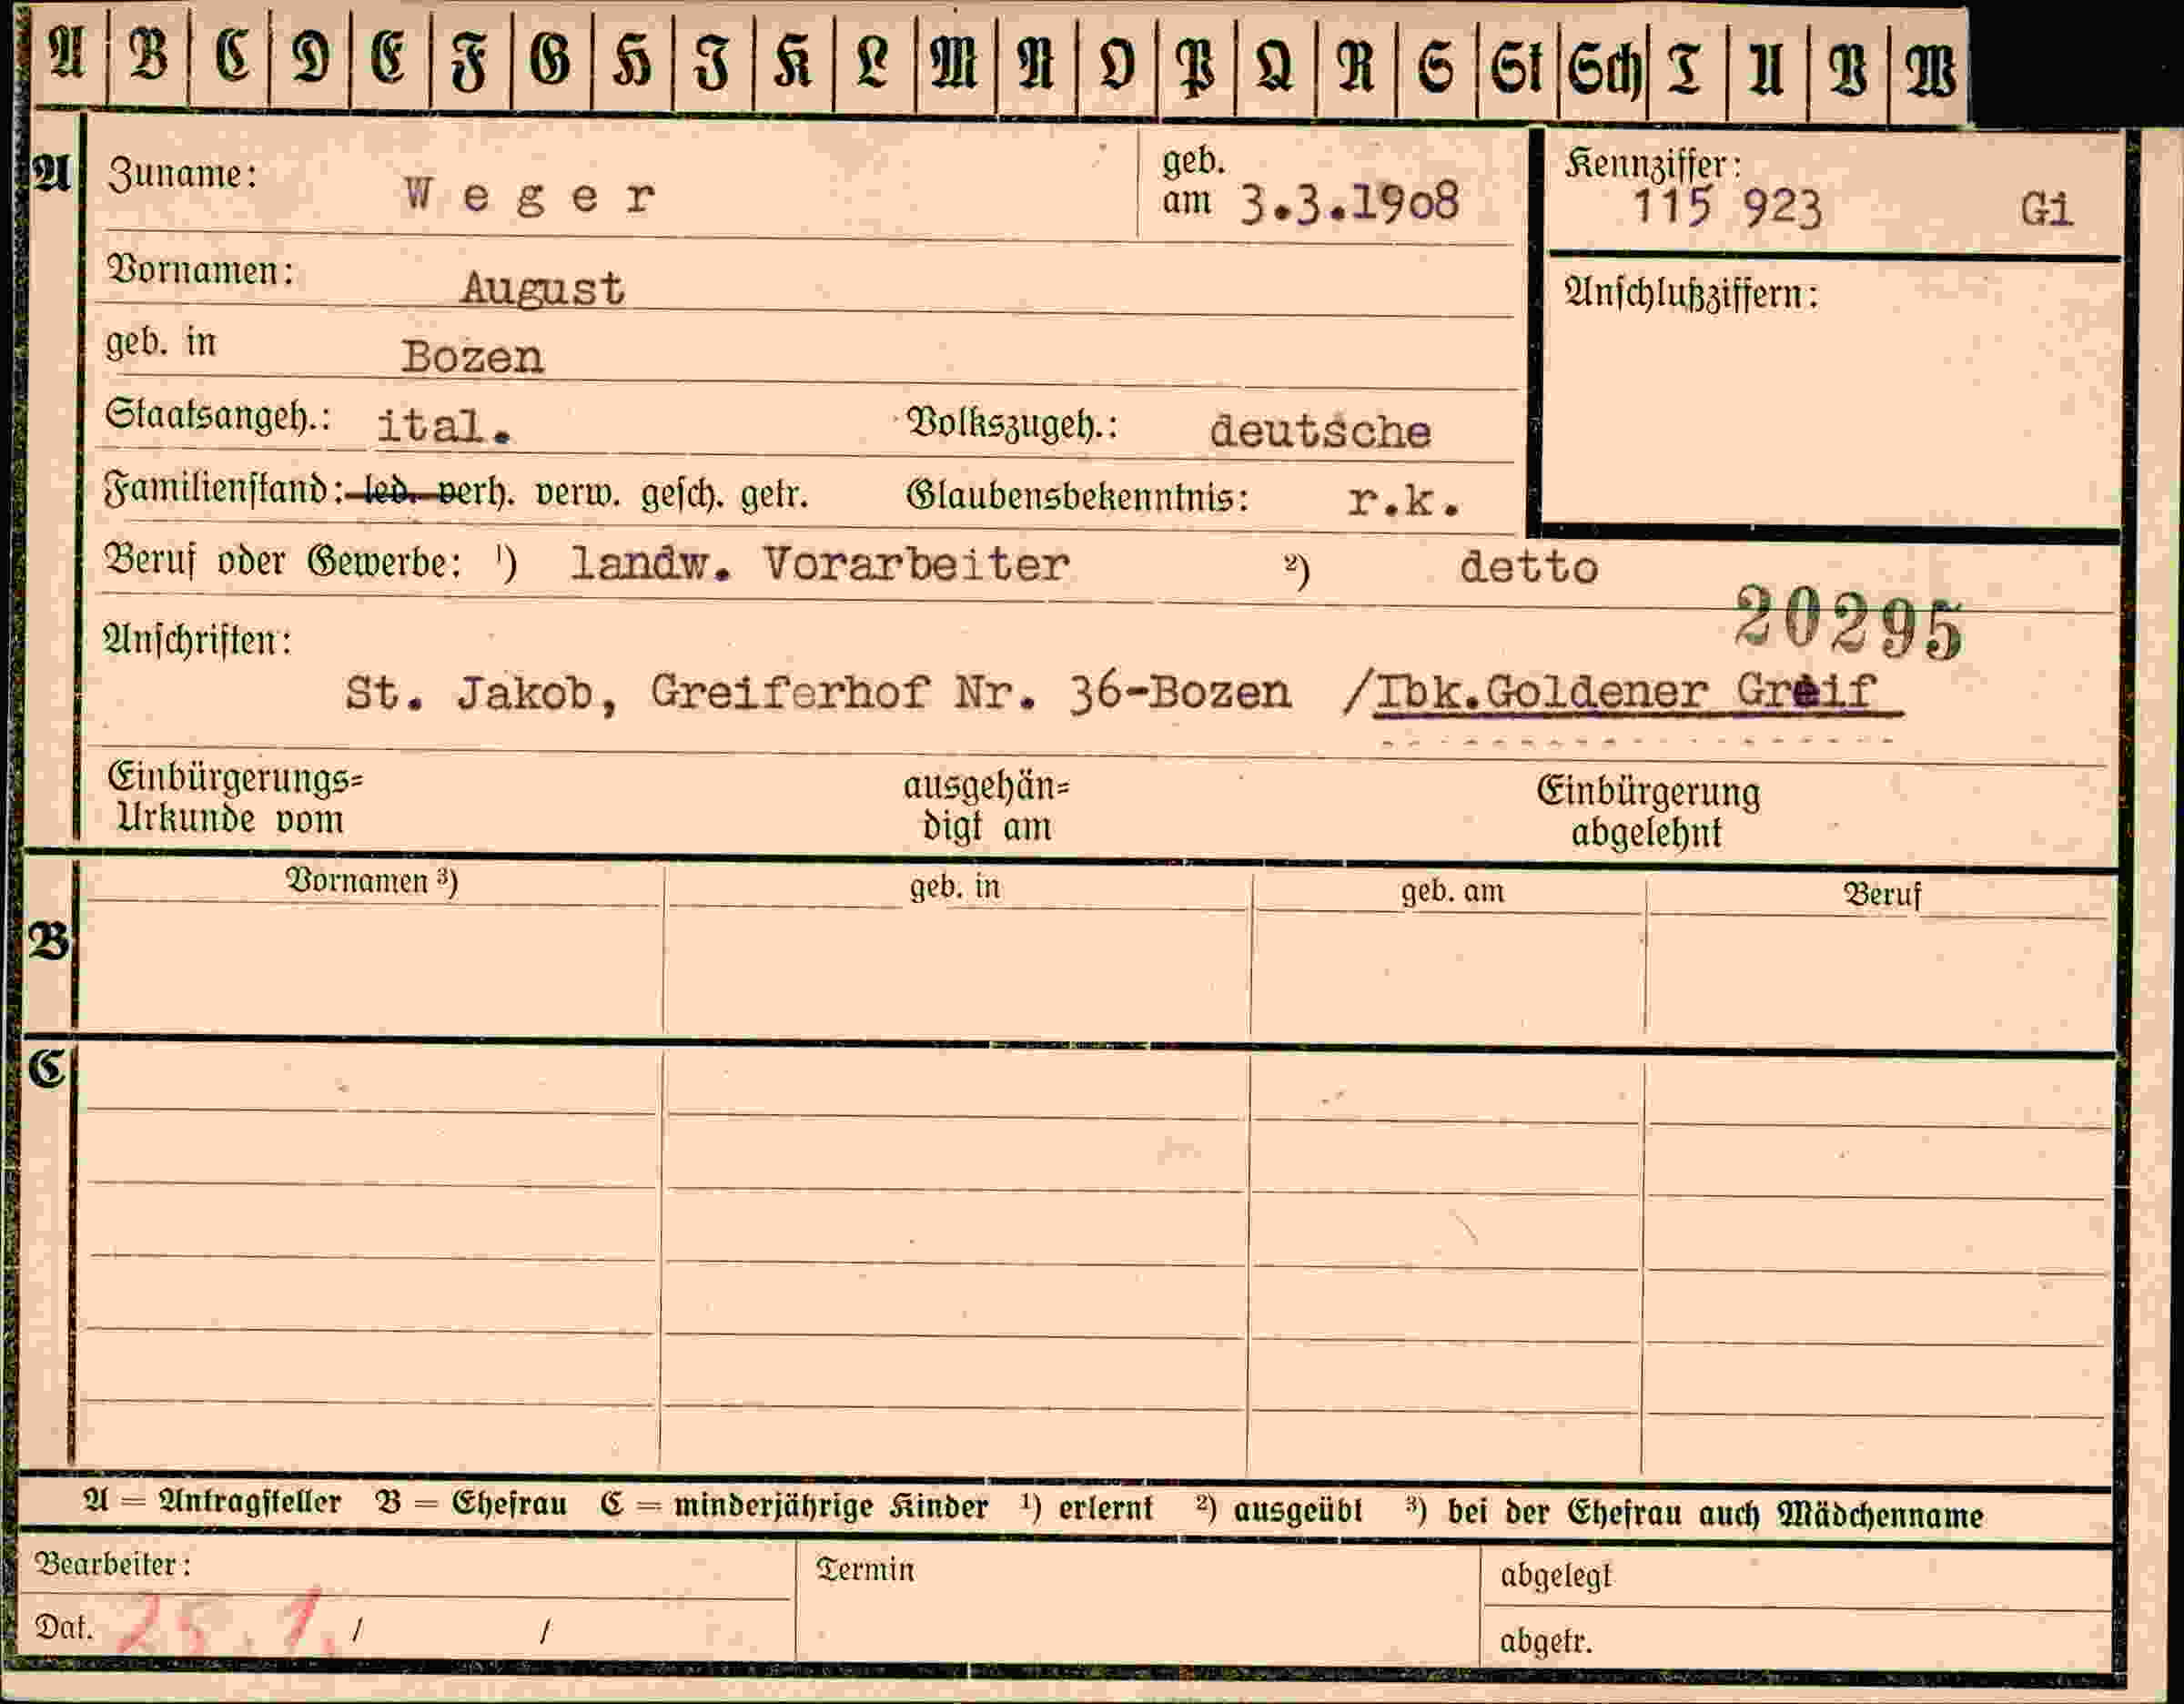 A B C D E F G H J K L M N O P Q R S St Sch T U V W
A Zuname: Weger geb. am 3.3.1908 Kennziffer: 115 923 Gi
Vornamen: August Anschlußziffern:
geb. in Bozen
Staatsangeh.: ital. Volkszugeh.: deutsche
Familienstand: led. verh. verw. gesch. getr. Glaubensbekenntnis: r.k.
Beruf oder Gewerbe: ¹) landw. Vorarbeiter ²) detto
20295
Anschriften:
St. Jakob, Greiferhof Nr. 36-Bozen /Ibk.Goldener Greif
Einbürgerungs= ausgehän= Einbürgerung
Urkunde vom digt am abgelehnt
Vornamen ³) geb. in geb. am Beruf
B
C
A = Antragsteller B = Ehefrau C = minderjährige Kinder ¹) erlernt ²) ausgeübt ³) bei der Ehefrau auch Mädchenname
Bearbeiter: Termin abgelegt
Dat. 25.1. / / abgetr.